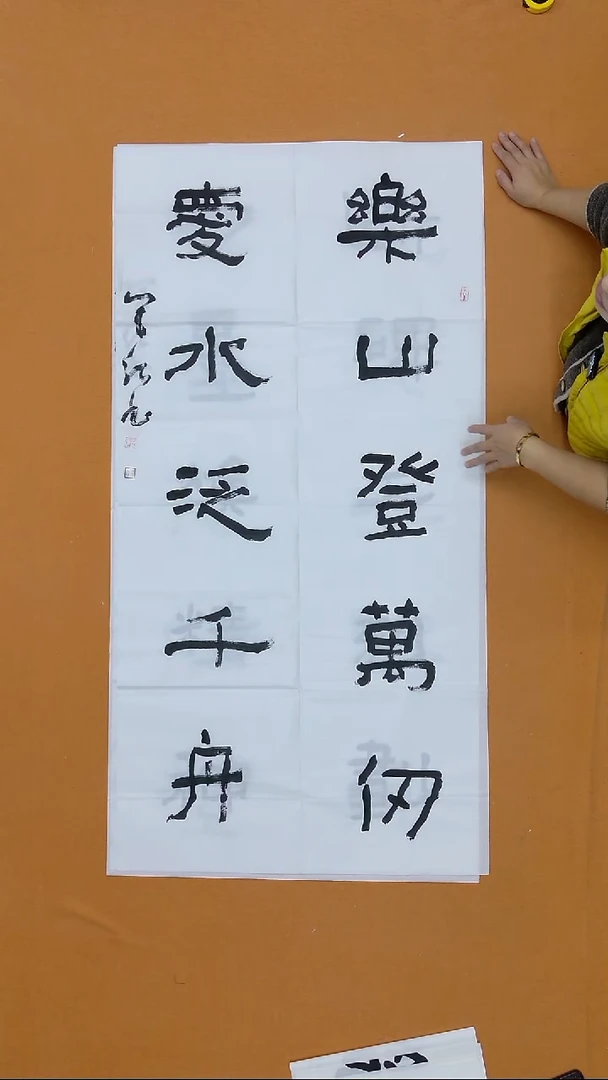 樂山登萬仞
愛水泛千舟